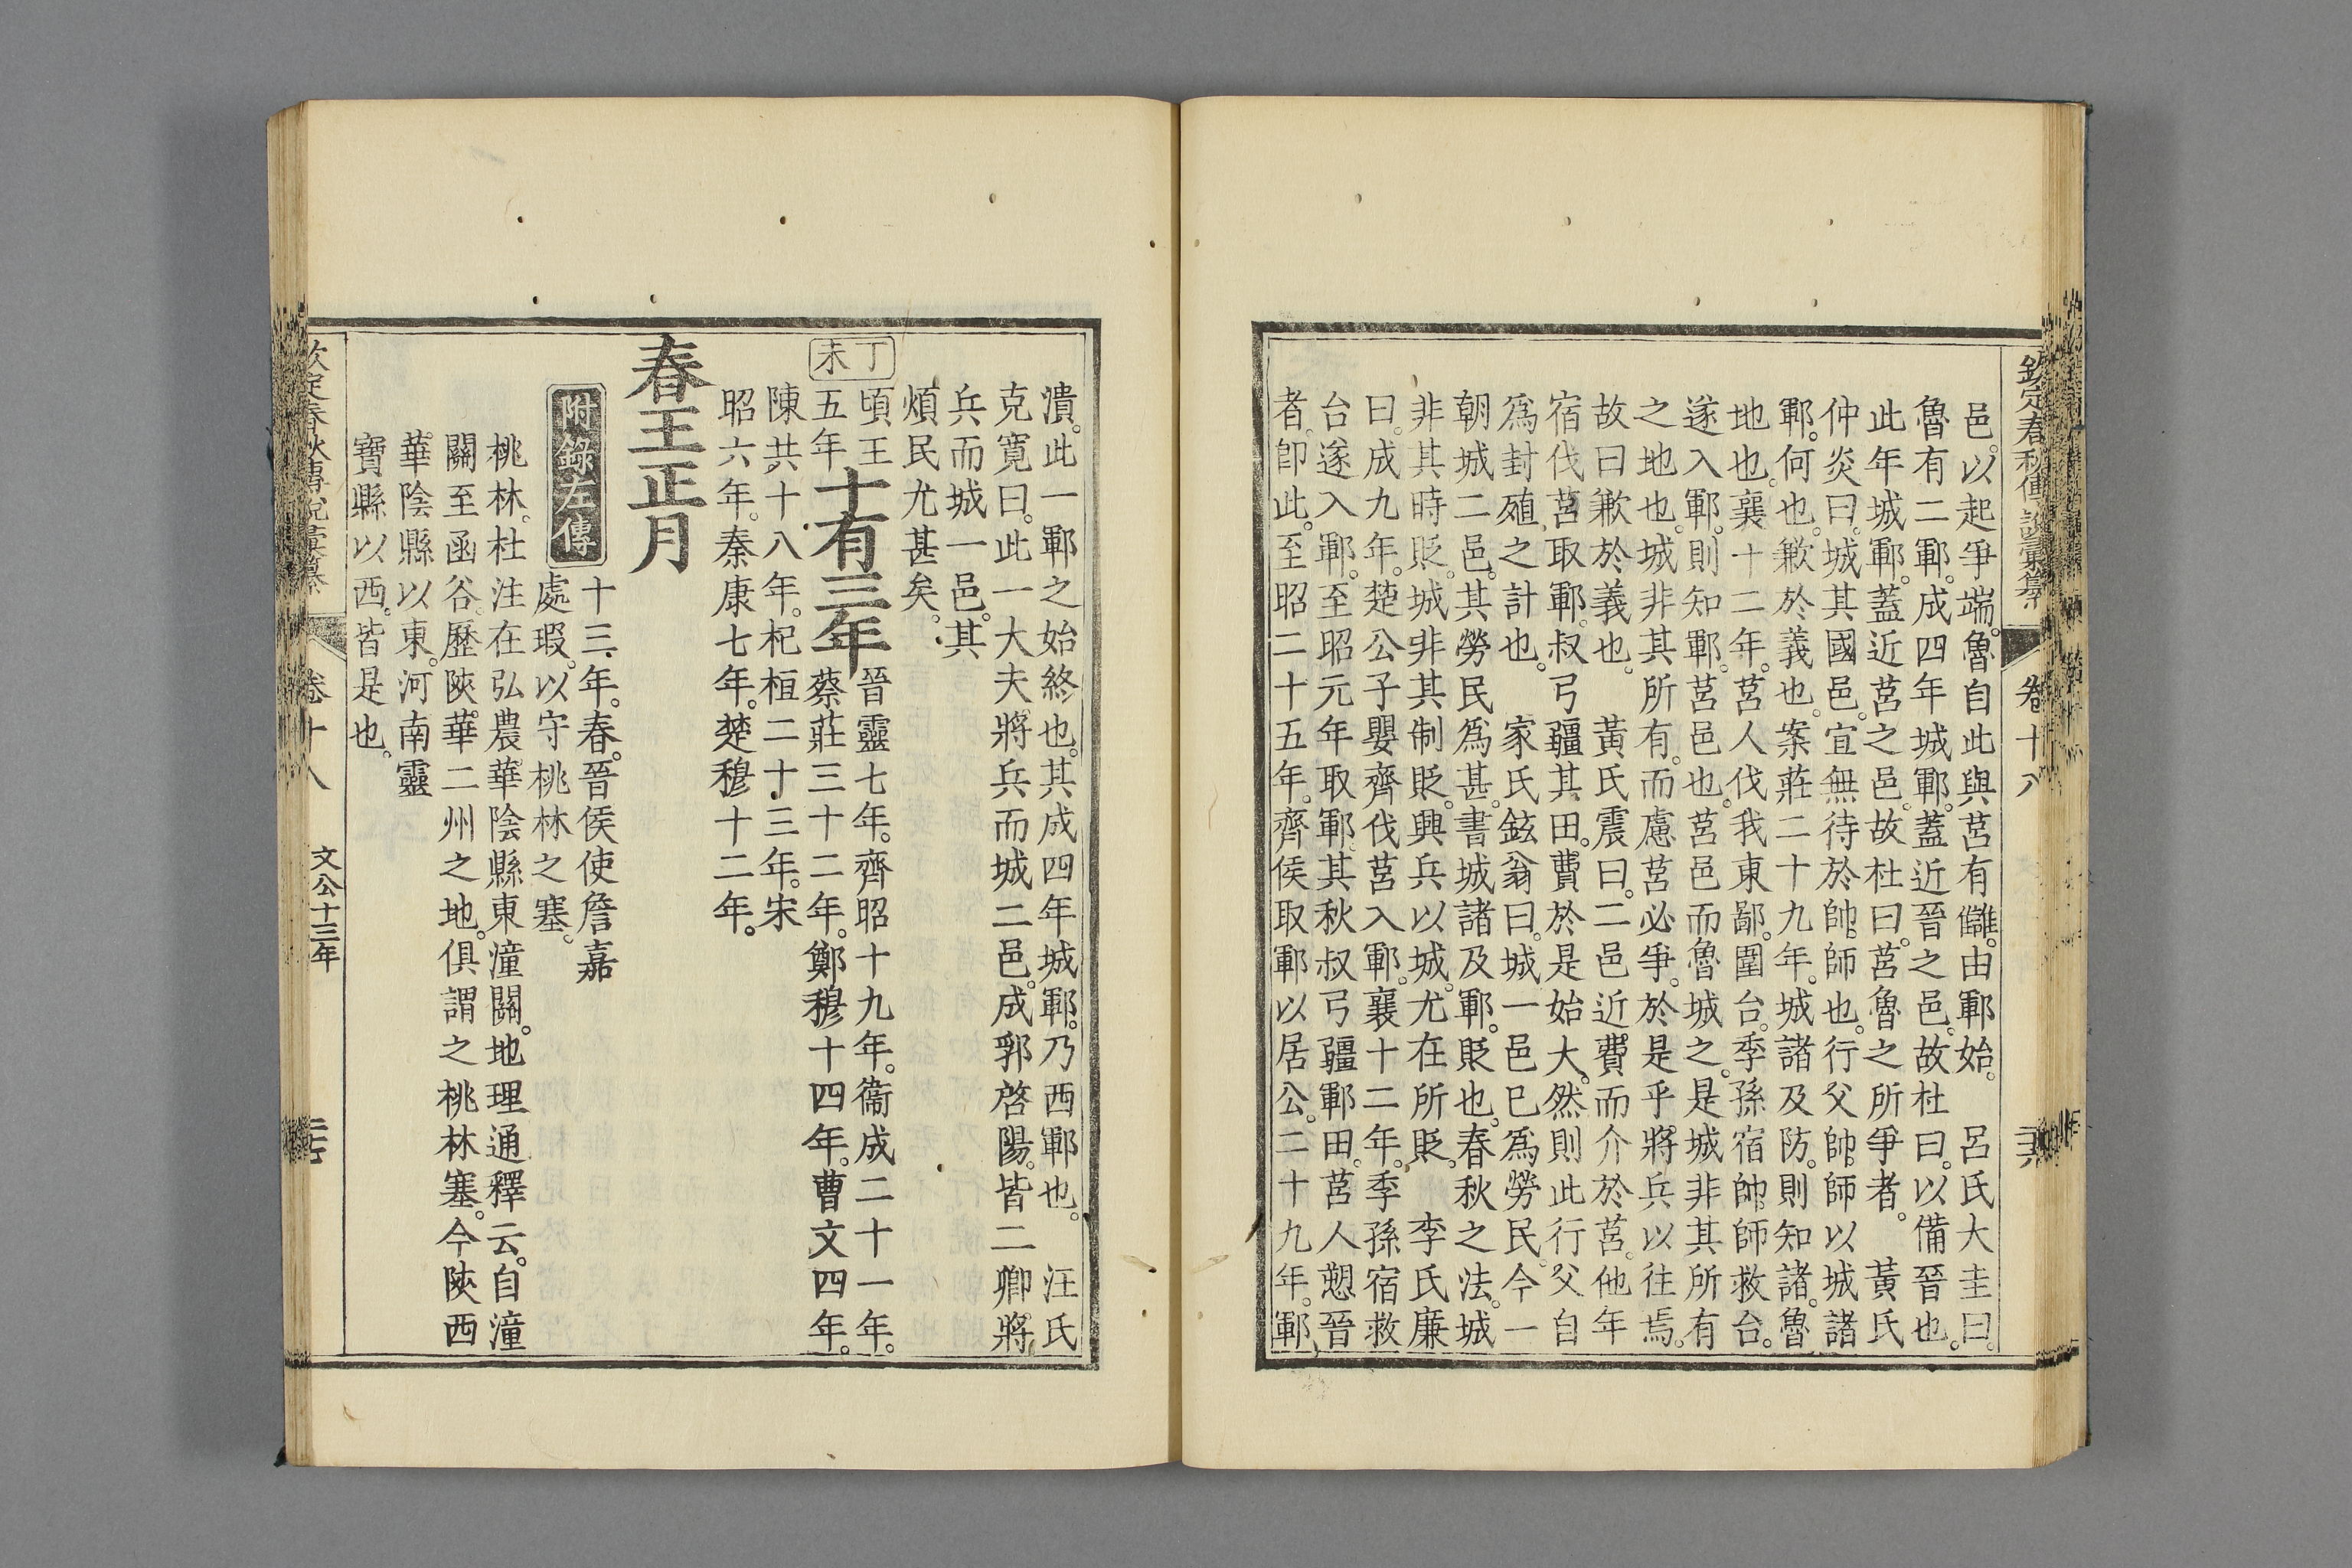 欽定春秋傳說彙纂 卷十八
邑。以起爭端。魯自此與莒有讎。由鄆始。 呂氏大圭曰。
魯有二鄆。成四年城鄆。蓋近晉之邑。故杜曰。以備晉也。
此年城鄆。蓋近莒之邑。故杜曰。莒魯之所爭者。 黃氏
仲炎曰。城其國邑。宜無待於帥師也。行父帥師以城諸
鄆。何也。歉於義也。案莊二十九年。城諸及防。則知諸。魯
地也。襄十二年。莒人伐我東鄙。圍台。季孫宿帥師救台。
遂入鄆。則知鄆。莒邑也。莒邑而魯城之。是城非其所有
之地也。城非其所有。而慮莒必爭。於是乎將兵以往焉。
故曰歉於義也。 黃氏震曰。二邑近費而介於莒。他年
宿伐莒取鄆。叔弓疆其田。費於是始大。然則此行父自
爲封殖之計也。 家氏鉉翁曰。城一邑已爲勞民。今一
朝城二邑。其勞民爲甚。書城諸及鄆。貶也。春秋之法。城
非其時貶。城非其制貶。興兵以城。尤在所貶。 李氏廉
曰。成九年。楚公子嬰齊伐莒入鄆。襄十二年。季孫宿救
台遂入鄆。至昭元年取鄆。其秋叔弓疆鄆田。莒人愬晉
者。卽此。至昭二十五年。齊侯取鄆以居公。二十九年。鄆
潰。此一鄆之始終也。其成四年城鄆。乃西鄆也。 汪氏
克寬曰。此一大夫將兵而城二邑。成郛啓陽。皆二卿將
兵而城一邑。其
煩民尤甚矣。
丁未
頃王五年
十有三年
晉靈七年。齊昭十九年。衞成二十一年。
蔡莊三十二年。鄭穆十四年。曹文四年。
陳共十八年。杞桓二十三年。宋
昭六年。秦康七年。楚穆十二年。
春王正月
附錄左傳
十三年。春。晉侯使詹嘉
處瑕。以守桃林之塞。
桃林。杜注在弘農華陰縣東潼關。地理通釋云。自潼
關至函谷。歷陝華二州之地。俱謂之桃林塞。今陝西
華陰縣以東。河南靈
寶縣以西。皆是也。
卷十八 文公十三年